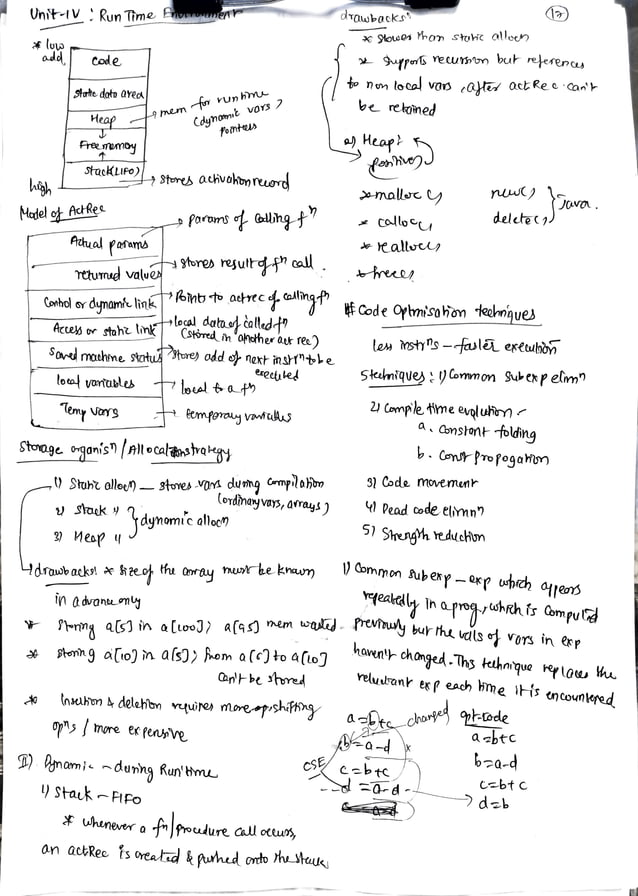 Unit-IV : Run Time Environment
* low add.
code
static data area
Heap → mem for runtime (dynamic vars, pointers
Free memory
stack(LIFO) → stores activation record
high
Model of ActRec
Actual params → params of calling fⁿ
returned values → stores result of fⁿ call.
Control or dynamic link → Points to actrec of calling fⁿ
Access or static link → local data of called fⁿ (stored in another act rec)
Saved machine status → stores add of next instrⁿ to be executed
local variables → local to a fⁿ
Temp vars → temporary variables
Storage organisⁿ / Allocatⁿ strategy
1) Static allocⁿ — stores vars during compilation (ordinary vars, arrays)
2) Stack " } dynamic allocⁿ
3) Heap "
drawbacks: * size of the array must be known
in advance only
* storing a[5] in a[100]; a[95] mem wasted
* storing a[10] in a[5]; from a[6] to a[10]
can't be stored
* Insertion & deletion requires more shifting
opⁿs / more expensive
II) Dynamic - during Run time
1) Stack - FIFO
* whenever a fn/procedure call occurs,
an actRec is created & pushed onto the stack.
17
drawbacks:
* Slower than static allocⁿ
* Supports recursion but references
to non local vars, after actRec can't
be retained
a) Heap:
positives
* malloc()
* calloc()
* realloc()
* free()
new()
delete() } Java.
# Code Optmisation techniques
less instrⁿs - faster execution
5 techniques: 1) Common Subexp elimⁿ
2) Compile time evolution -
a. Constant folding
b. Const propogation
3) Code movement
4) Dead code elimnⁿ
5) Strength reduction
1) Common subexp - exp which appears
repeatedly in a prog, which is computed
previously but the vals of vars in exp
haven't changed. This technique replaces the
reluctant exp each time it is encountered
a=b+c changed opt-code
b=a-d a=b+c
CSE c=b+c b=a-d
d=a-d c=b+c
d=b